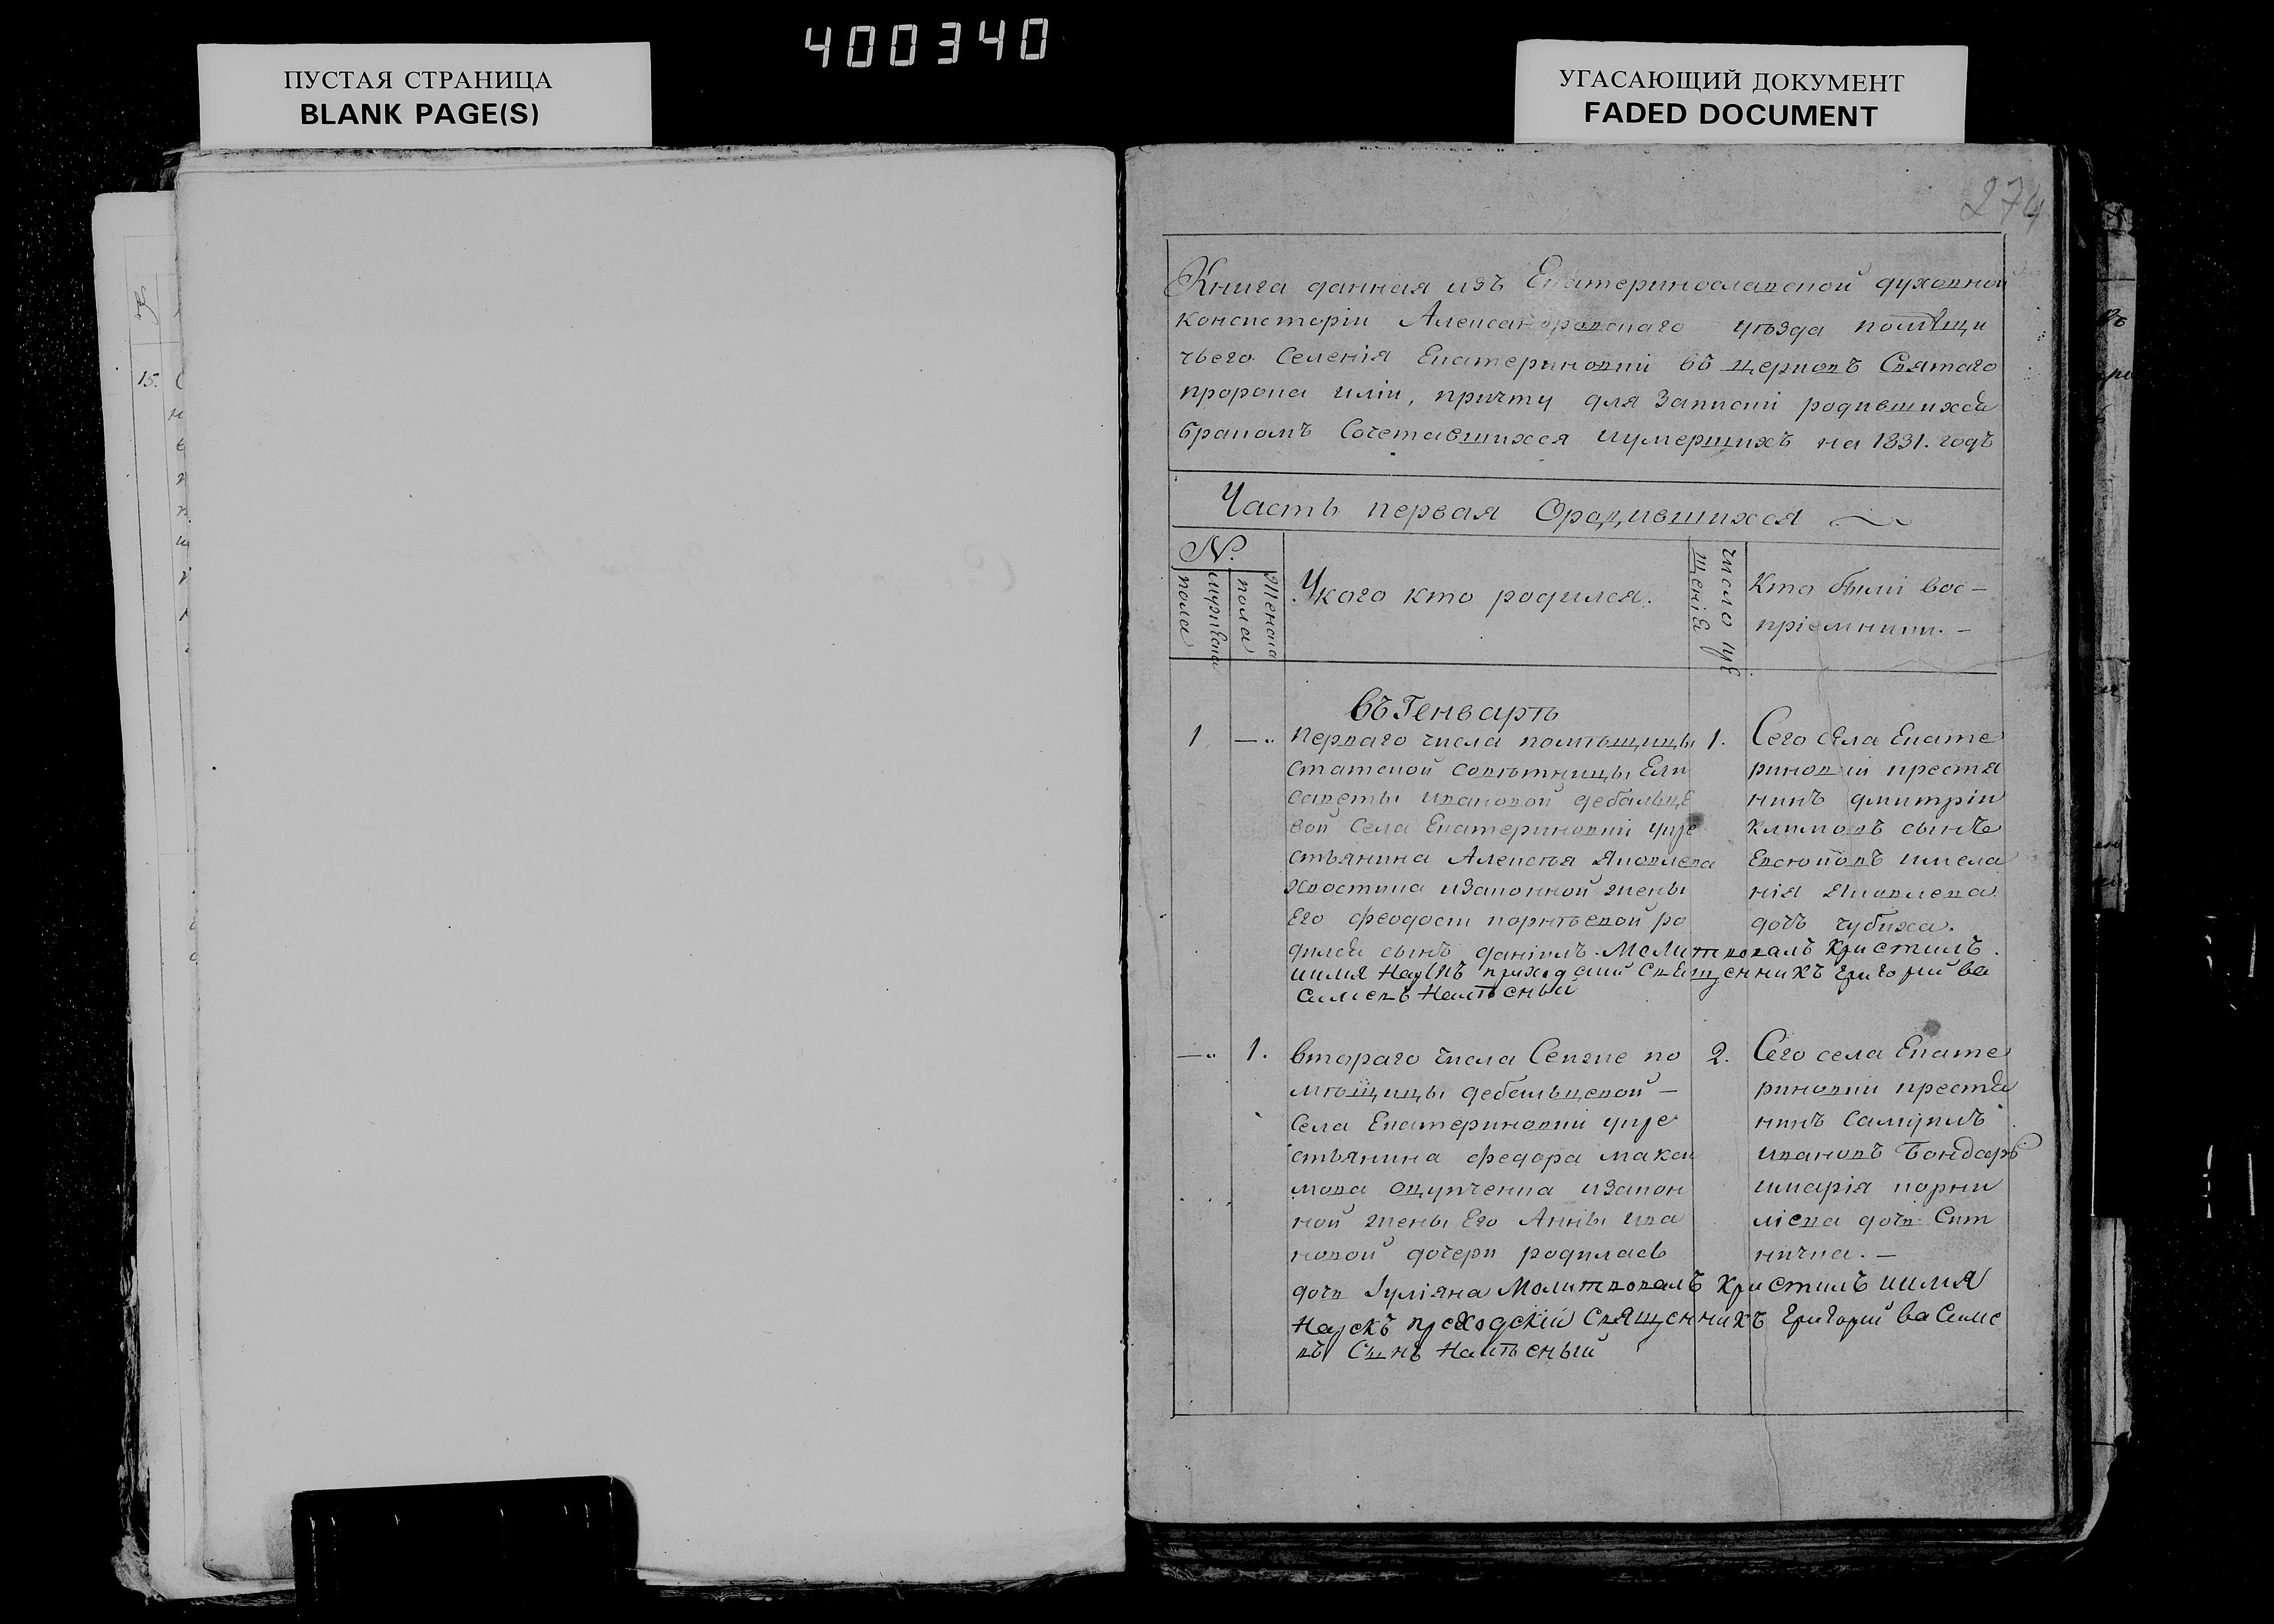 400340
ПУСТАЯ СТРАНИЦА
BLANK PAGE(S)
УГАСАЮЩИЙ ДОКУМЕНТ
FADED DOCUMENT
274
15.
Книга данная изъ Екатеринославской духовной
консисторіи Александровскаго уѣзда помѣщи
чьего Селенія Екатериновки въ церковь Святаго
пророка иліи, причту для Записки родившихся
бракомъ Сочетавшихся иумершихъ на 1831. годъ
Часть первая Ородившихся
N.
мужеска
пола
Женска
пола
Укого кто родился.
число кре
щенія
Кто были вос-
пріемники.-
въ Генварѣ
1
1.
первого числа помѣщицы
статской совѣтницы Ели
саветы ивановой дебальце
вой Села Екатериновки укре
стьянина Алексѣя Яковлева
Хвостика изаконной жены
Его феодосіи корнѣевой ро
дился сынъ даніилъ. Молитвовалъ Кристилъ
иимя Нарекъ приходскій Священникъ Григорий ва
силиевъ
Сего села Екате
риновки крестя
нинъ дмитрій
климовъ сынъ
дочь чубиха.
1.
2.
втораго числа Сейже по
мѣщицы дебальцевой -
Села Екатериновки укре
стьянина федора макси
мова изакон
ной жены Его Анны ива
новой дочери родилась
дочь Іуліяна Молитвовалъ Кристилъ иимя
Нарекъ преходскій Священникъ Григорий ва Силие
въ Сынъ
Сего села Екате
риновки крестя
нинъ Самуилъ
ивановъ Бондарь
имарія корни
ліева дочь Сит
ничка. -